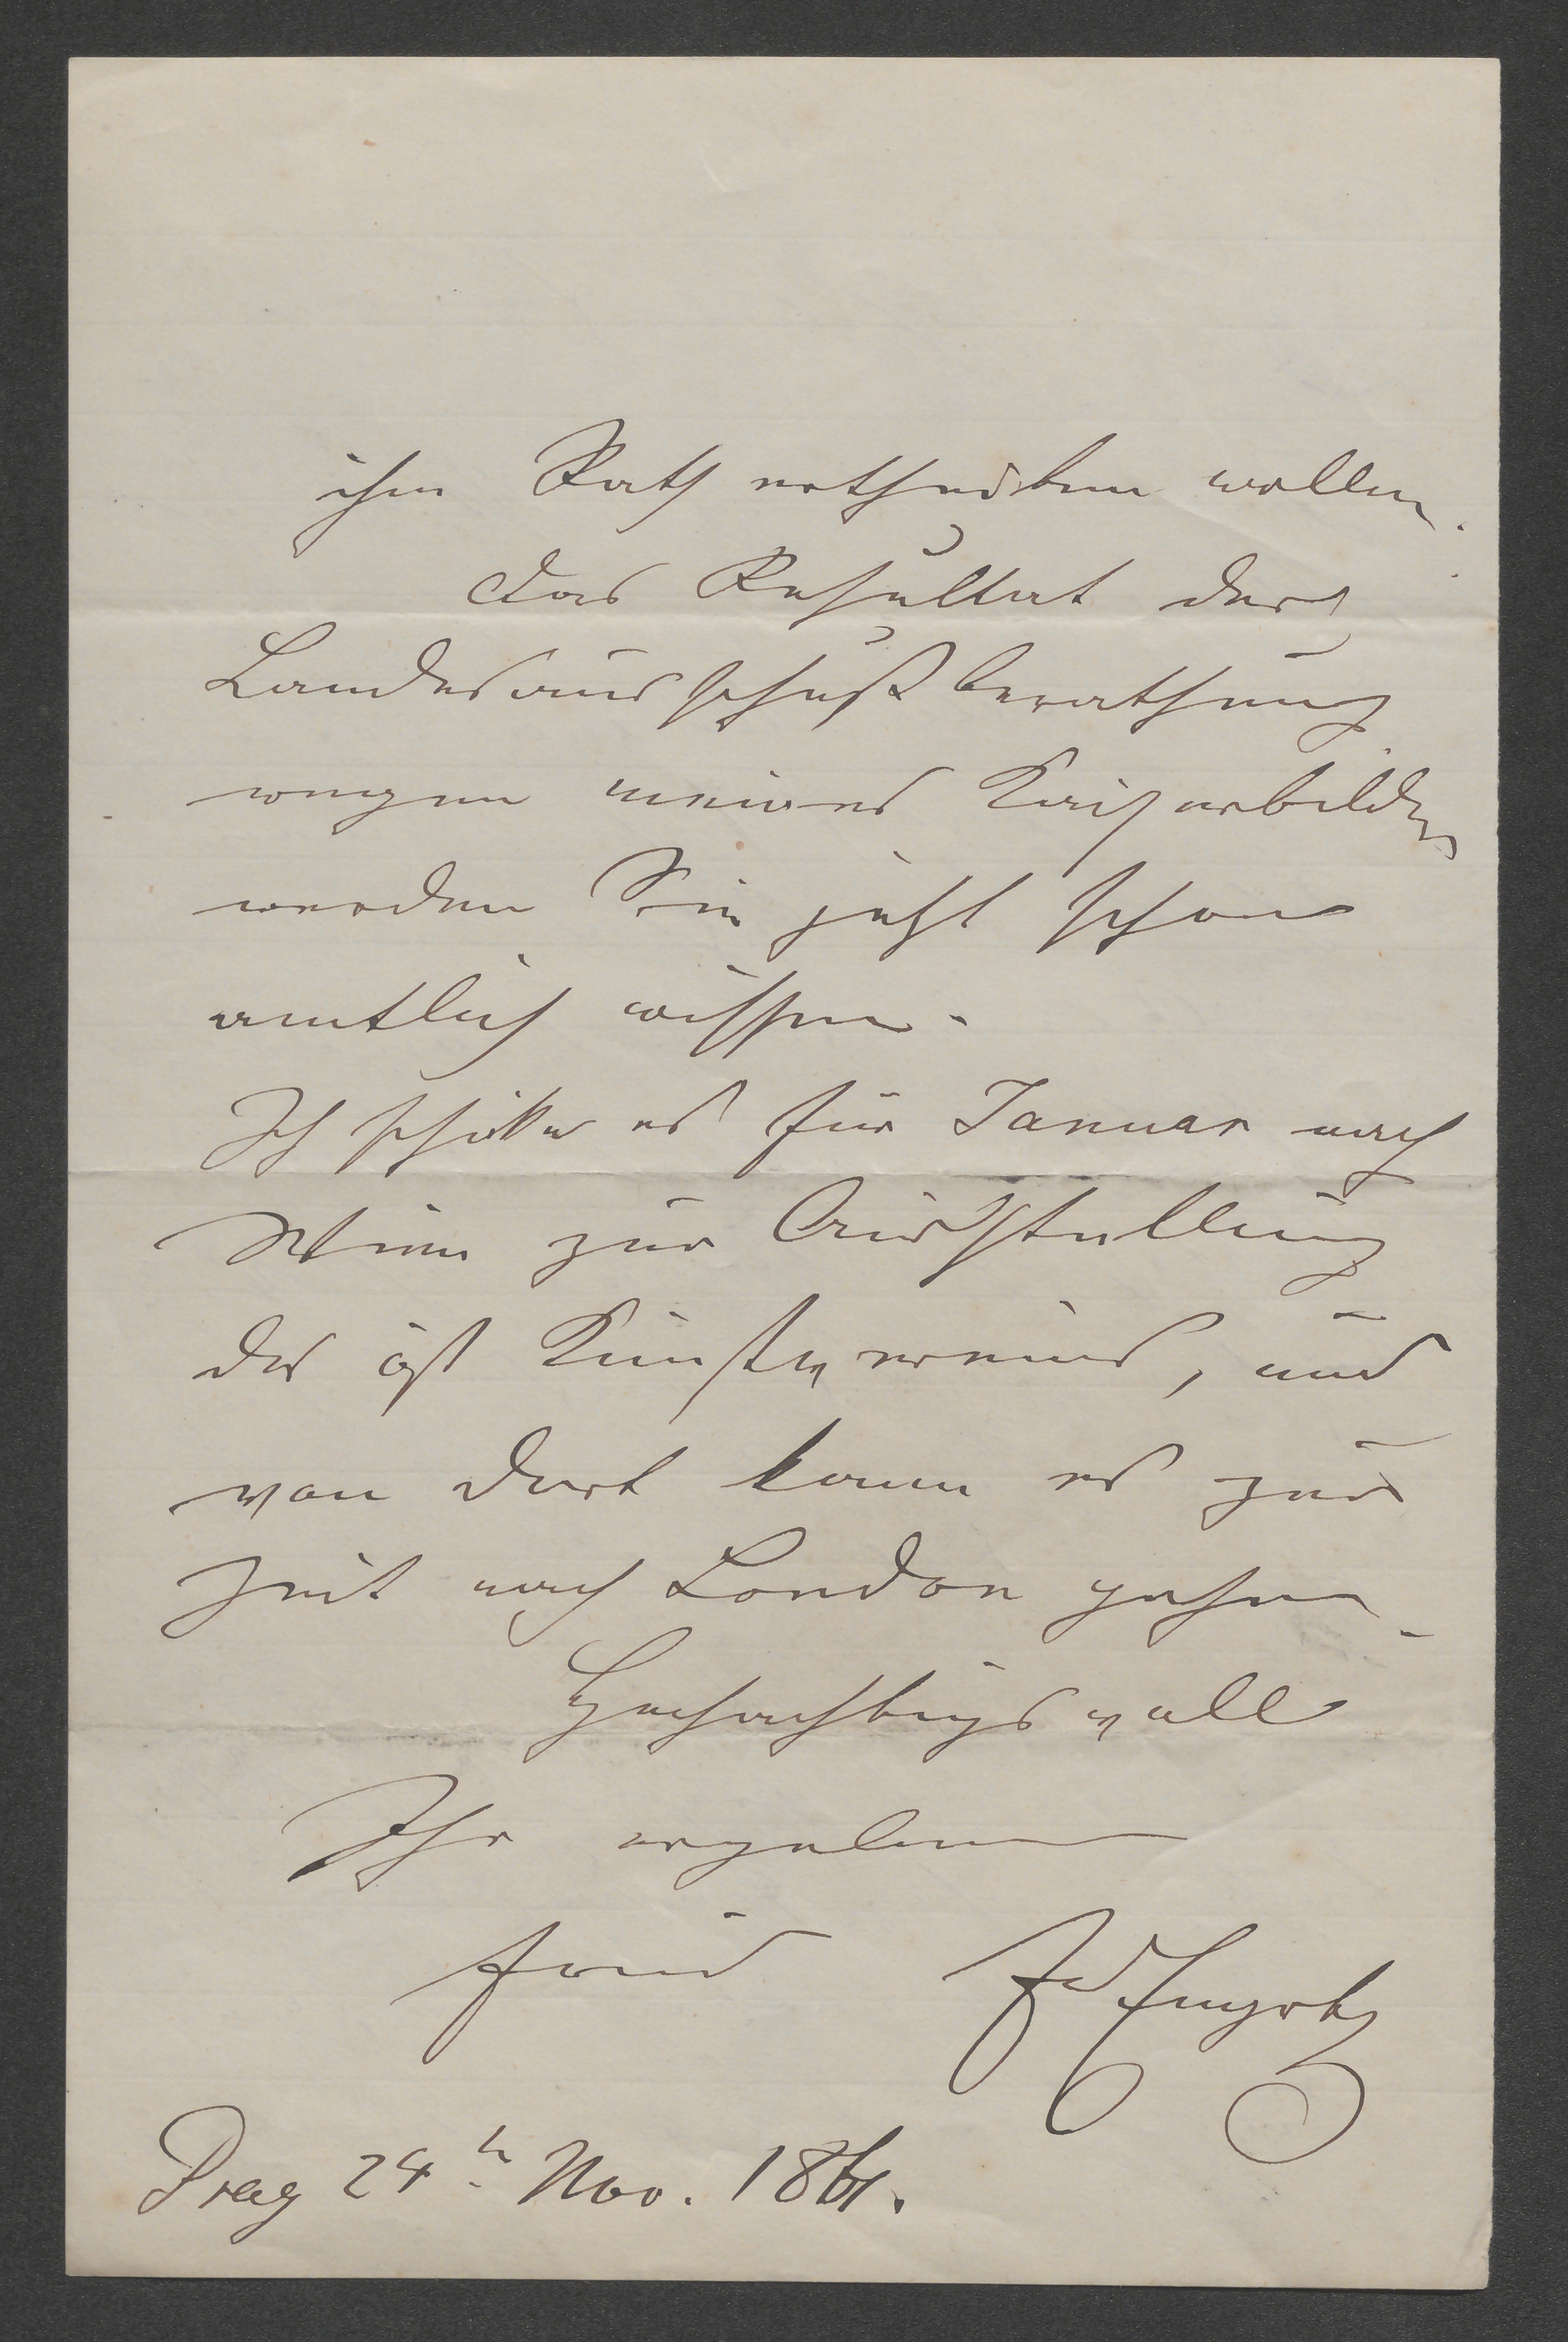 ihm Rath ertheilen wollen.
Das Resultat der
Landesausschußberathung
wegen meines Kaiserbildes
werden Sie jetzt schon
amtlich wissen.
Ich schicke es für Januar nach
Wien zur Ausstellung
des öst Kunstvereins, und
von dort kann es zur
Zeit nach London gehen.
Hochachtungsvoll
Ihr ergebener
Freund Ed Engerth
Prag 24t Nov. 1861.